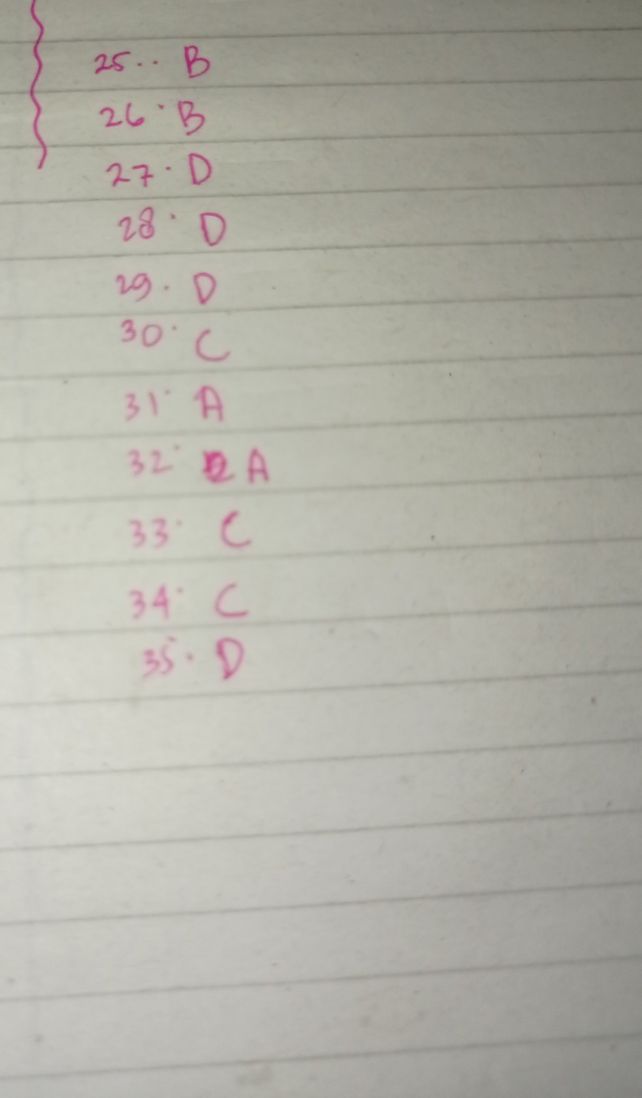 25.. B
26. B
27. D
28. D
29. D
30. C
31. A
32. A
33. C
34. C
35. D